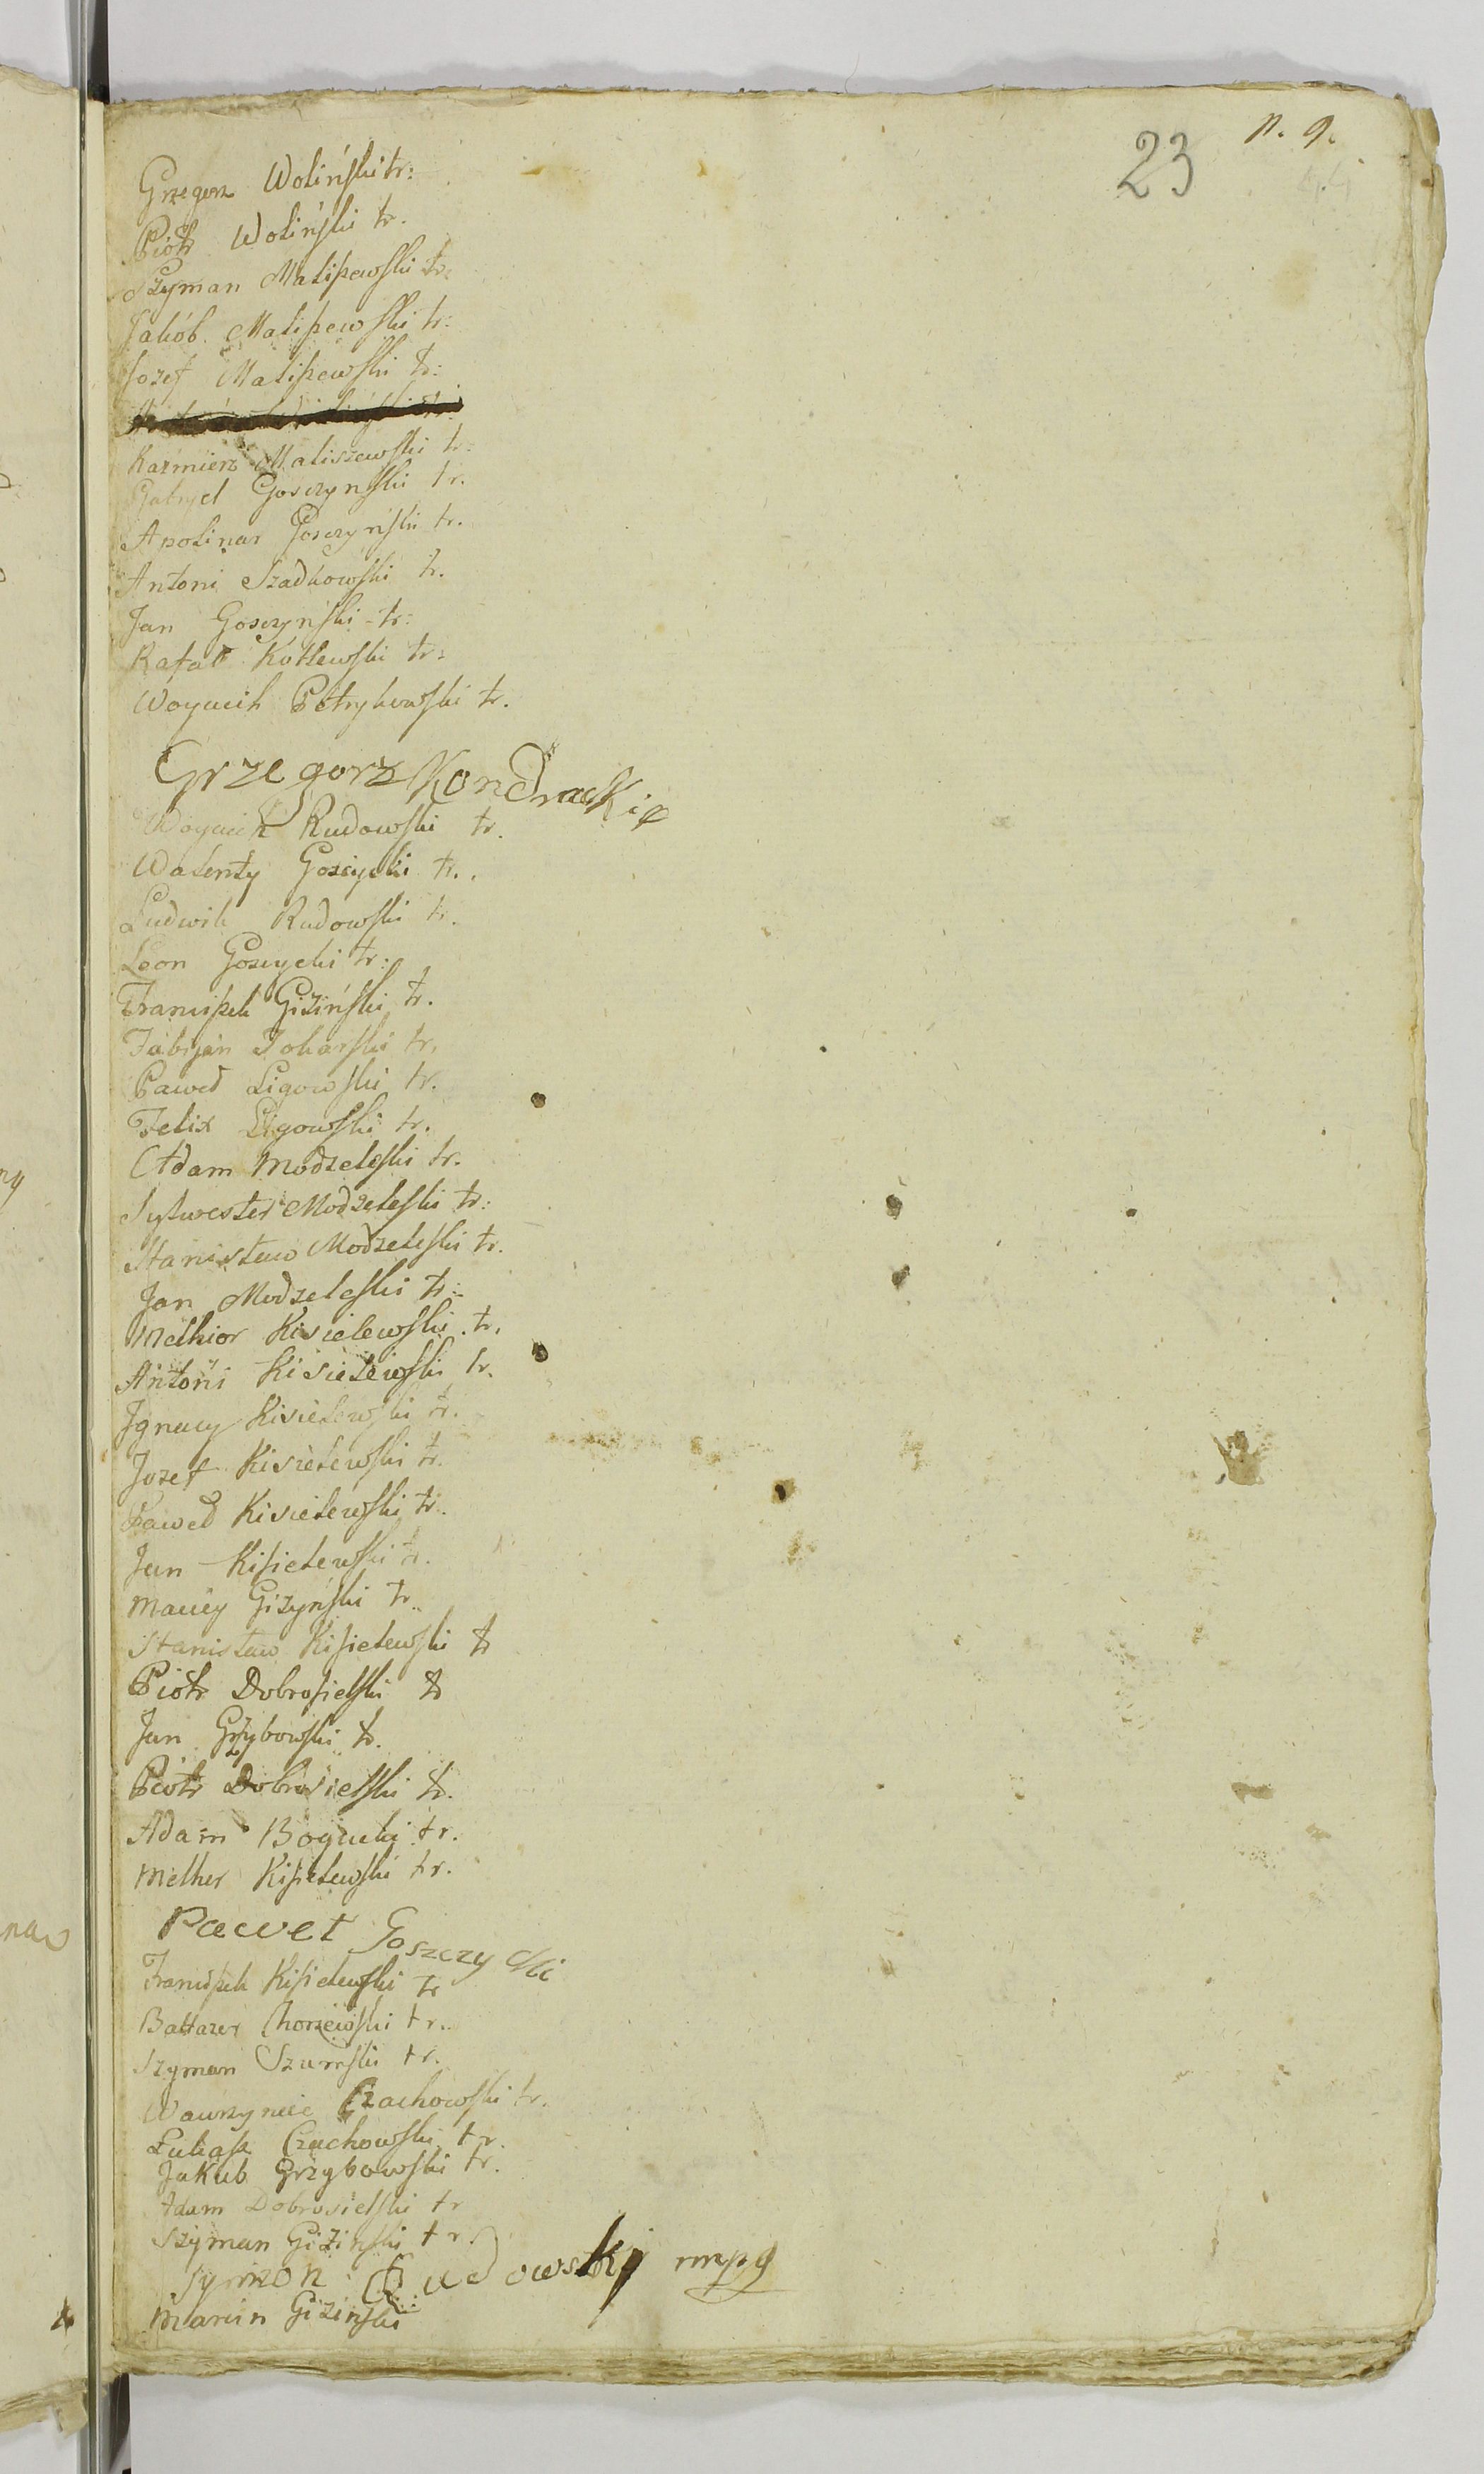 23 n. 9.
Grzegorz Woliński tr:
Piotr Woliński tr.
Szyman Maliszewski tr:
Jakób Maliszewski tr:
Jozef Maliszewski tr:
Kazmierz Maliszewski tr:
Gabryel Gosczynski tr.
Apolinar Gosczyński tr.
Antoni Szadkowski tr.
Jan Gosczyński - tr:
Rafał Kotlewski tr:
Woyciech Petrykowski tr.
Grzegorz Kondracki
Woyciech Rudowski tr.
Walenty Goscycki tr.
Ludwik Rudowski tr.
Leon Goscycki tr:
Franciszek Giziński tr.
Fabijan Tokarski tr.
Paweł Ligowski tr.
Felix Ligowski tr.
Adam Modzeleski tr.
Sylwester Modzeleski tr:
Stanisław Modzeleski tr.
Jan Modzeleski tr:
Melhior Kisielewski tr.
Antoni Kisielewski tr.
Jgnacy Kisielewski tr.
Jozef Kisielewski tr.
Paweł Kisielewski tr.
Jan Kisielewski tr.
Maciey Giżyński tr.
Stanisław Kisielewski tr
Piotr Dobrosielski tr
Jan Grzybowski tr.
Piotr Dobrosielski tr.
Adam Bogucki tr.
Melher Kisielewski tr.
Paweł Goszczycki
Franciszek Kisielewski tr
Baltazer Chorzewski tr.
Szyman Szumski tr.
Wawrzyniec Czachowski tr.
Łukasz Czachowski tr.
Jakub Grzybowski tr.
Adam Dobrosielski tr
Szyman Giziński tr.
Symon mpg
Marcin Giziński